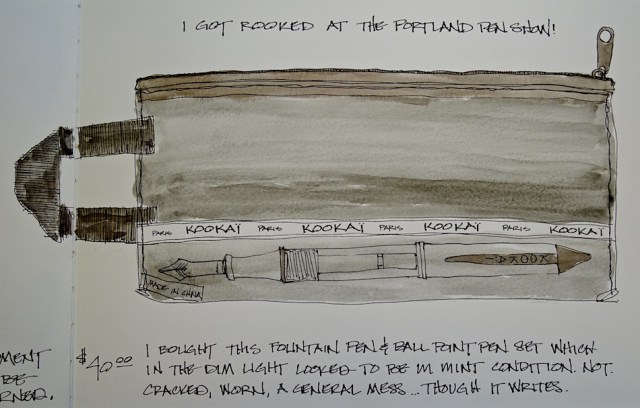 I GOT ROOKED AT THE PORTLAND PEN SHOW!
PARIS KOOKAÏ PARIS KOOKAÏ PARIS KOOKAÏ PARIS KOOKAÏ
MADE IN CHINA
$40.00
I BOUGHT THIS FOUNTAIN PEN & BALL POINT PEN SET WHICH
IN THE DIM LIGHT LOOKED TO BE IN MINT CONDITION. NOT.
CRACKED, WORN, A GENERAL MESS... THOUGH IT WRITES.
MENT
BE
RNED.